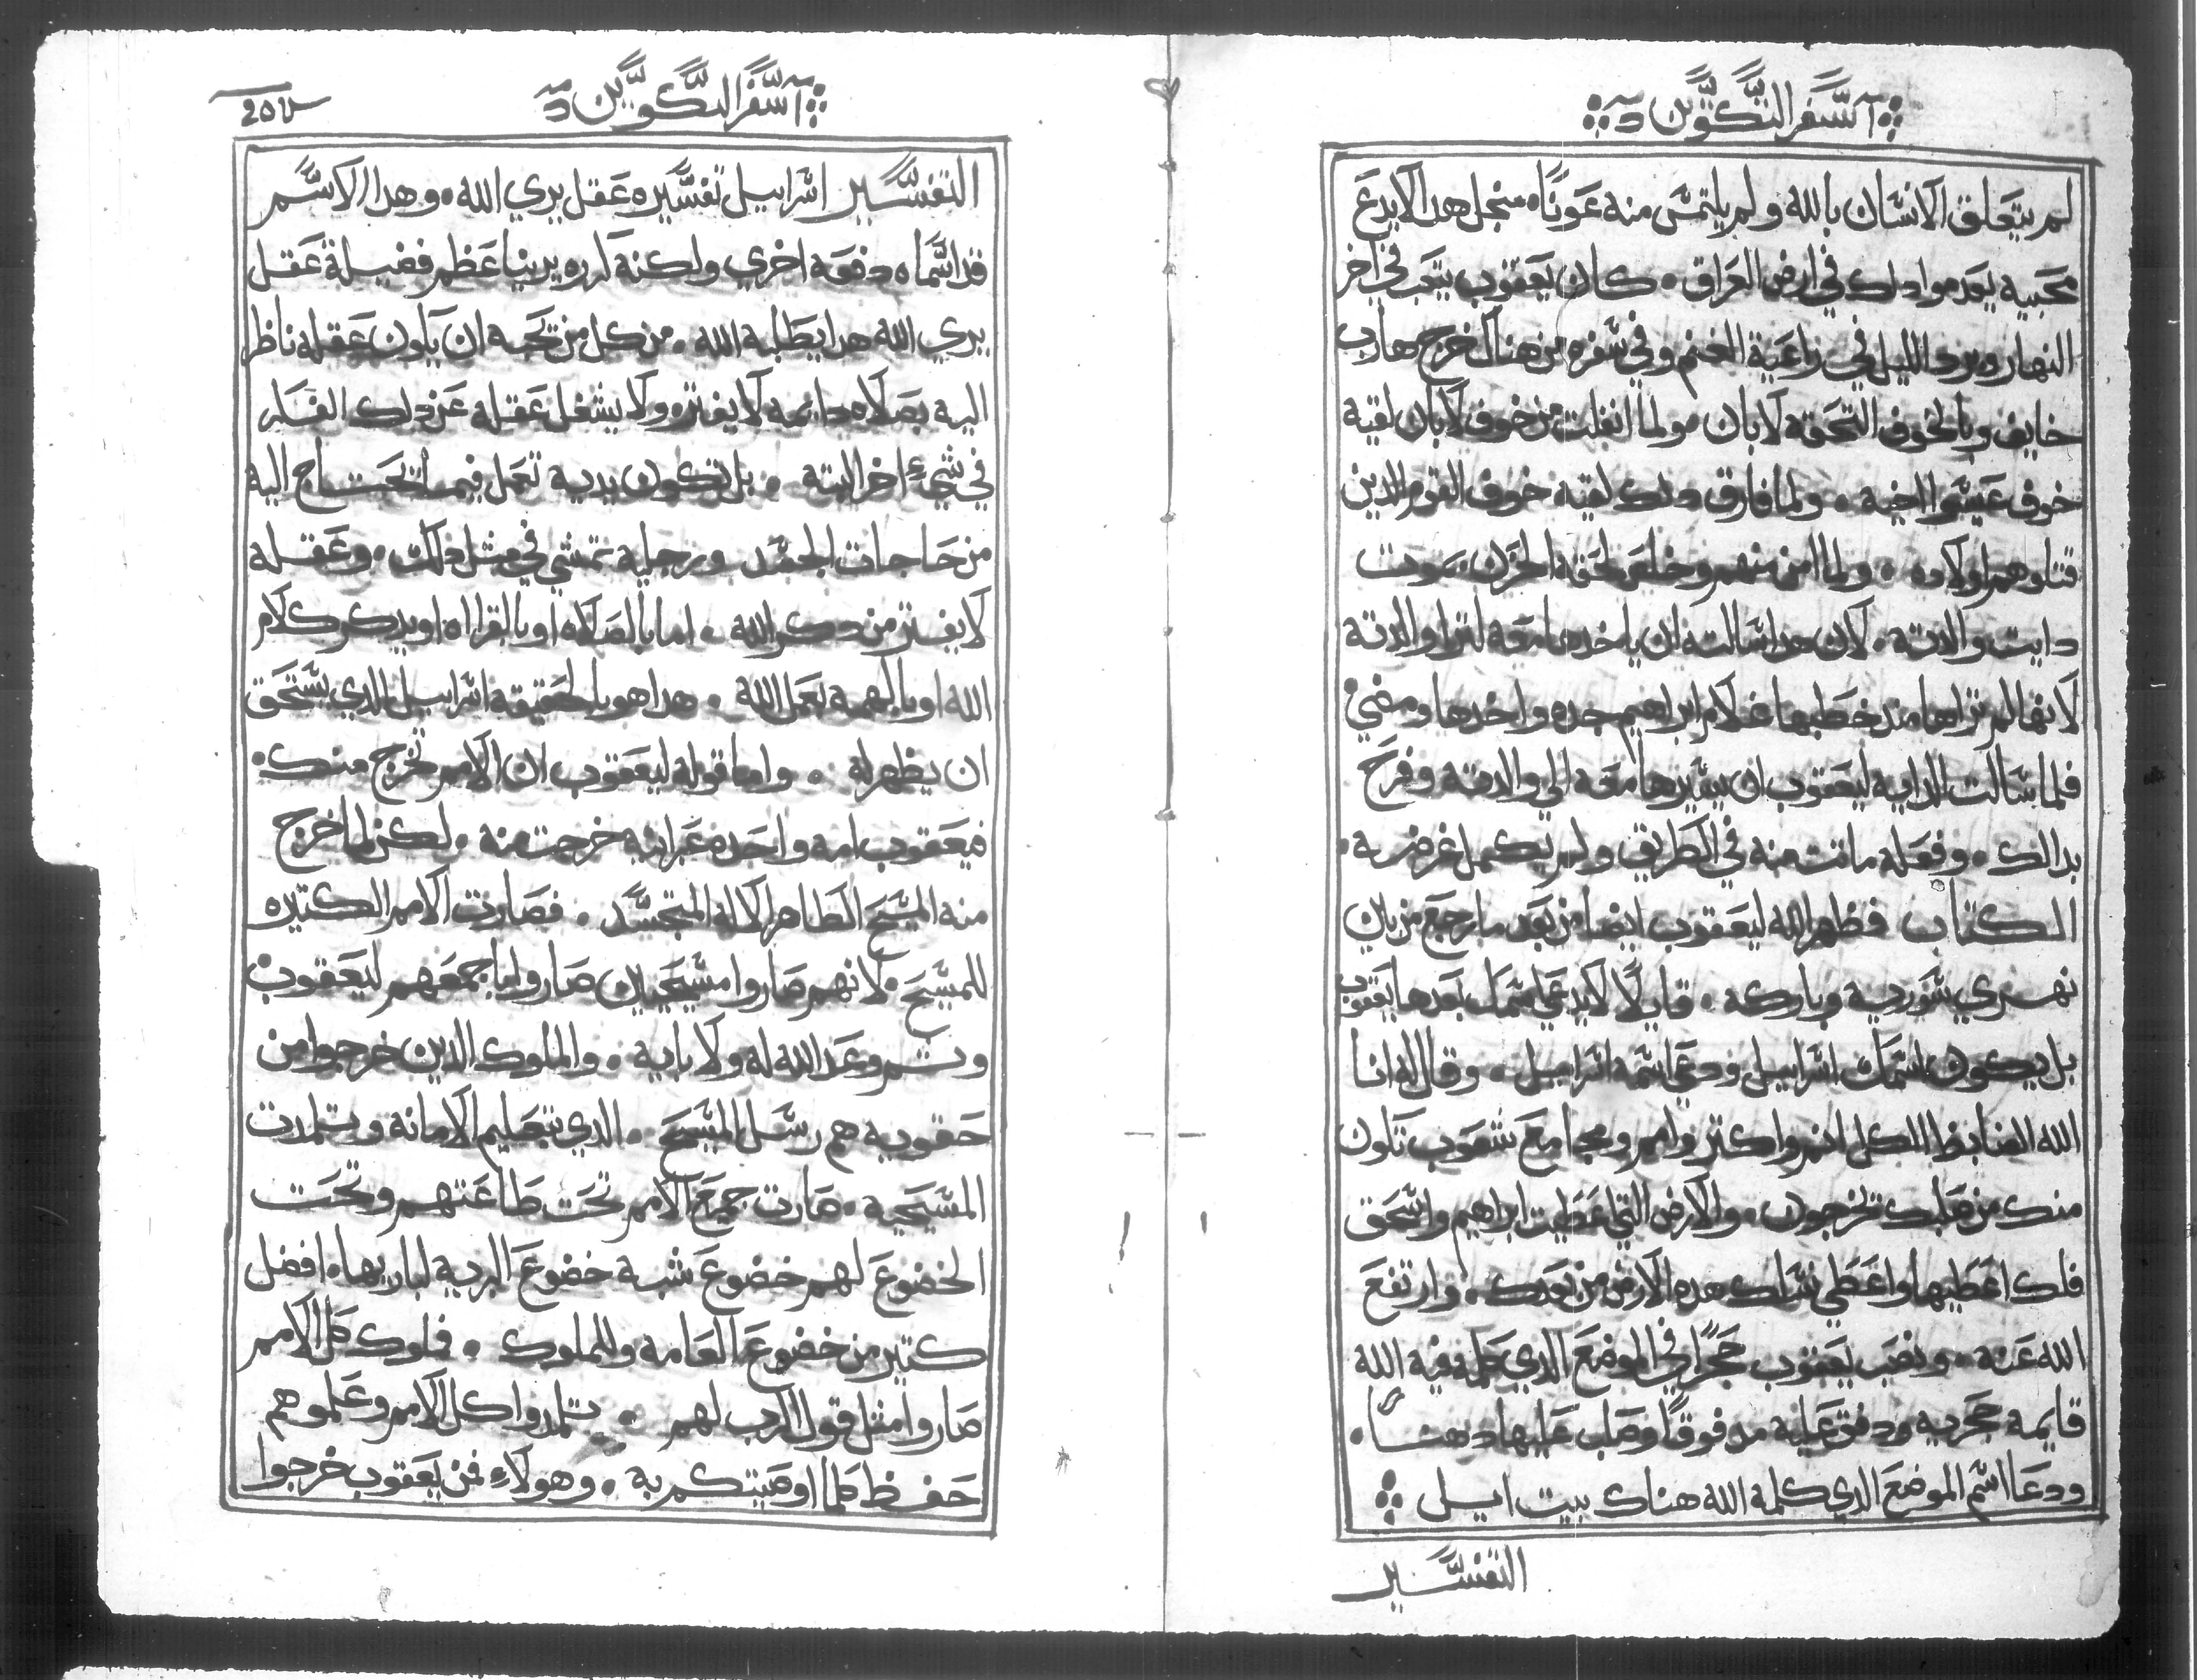 سفر التكوين
لم يتعلق الانسان بالله ولم يلتمس منه عونًا من اجل هدا لا يدع
محبيه بعدموا دلك في ارض العراق. كان يعقوب يتعب في اخر
النهار وبرد الليل في راعية الغنم وفي سفره من هناك خرج هارب
خايف وبالخوف التحقه لابان ولما انفلت من خوف لابان لقيه
خوف عيسوا اخيه. ولما فارق دلك لقيه خوف القوم الدين
قتلوهم اولاده. ولما امن منهم وخلص لحقه الحزن بموت
دابت والدته. لان هدا سالته ان ياخدها معه لترا والدته
لانها لم تراها مند خطبها غلام ابراهيم جده واخدها ومضي
فلما سالت الدايه ليعقوب ان يسيرها معه الي والدته وفرح
بدالك. وفعله ماتت منه في الطريق ولم يكمل غرضه.
الكتاب فظهر الله ليعقوب ايضا من بعد ما رجع من بين
نهري سورديه وباركه. قايلًا لا يدعي اسمك بعدها يعقوب
بل يكون اسمك اسراييل ودعي اسمه اسراييل. وقال له انا
الله الضابط الكل انموا واكتر وامم ومجامع شعوب تكون
منك من صلبك تخرجون. والارض التي اعطيت ابراهيم واسحق
فلك اعطيها واعطي نسلك هده الارض من بعدك. وارتفع
الله عنه. ونصب يعقوب حجرًا في الموضع الدي كلمه فيه الله
قايمه حجريه ودفق عليه مدفوقًا وصب عليها دهنًا.
ودعا اسم الموضع الدي كلمه الله هناك بيت ايل
التفسير
سفر التكوين
205
التفسير اسراييل تفسيره عقل يري الله. وهدا الاسم
قد اسماه دفعه اخري ولكنه اره يرينا عظم فضيلة عقل
يري الله هدا يطلبه الله. من كل من تحبه ان يكون عقله ناظر
اليه بصلاه دايمه لا يفتره ولا يشغل عقله عن دلك الفكر
في شيء اخر البته. بل تكون يديه تعمل فيما تحتاج اليه
من حاجات الجسد ورجليه تمشي في مثل دلك. وعقله
لا يفتر من دكر الله. اما بالصلاه او بالقراه او يدكر كلام
الله او بالهمه بعمل الله. هدا هو بالحقيقه اسراييل الدي يستحق
ان يظهر له. واما قوله ليعقوب ان الامم تخرج منك.
فيعقوب امه واحده عبرانيه خرجت منه. لكن لما خرج
منه المسيح الطاهر الاله المتجسد. فصارت الامم الكتيره
للمسيح. لانهم صاروا مسيحيين صاروا باجمعهم ليعقوب
وتم وعد الله له ولابايه. والملوك الدين خرجوا من
حقويه هم رسل المسيح. الدي بتعليم الامانه وتلمدت
المسيحيه. صارت جميع الامم تحت طاعتهم وتحت
الخضوع لهم خضوع شبه خضوع البريه لباريها. افضل
كتير من خضوع العامه وللملوك. فلوك كل الامم
صاروا مثل قول الرب لهم. تلمدوا كل الامم وعلموهم
حفظ كلما اوصيتكم به. وهولاء فمن يعقوب خرجوا